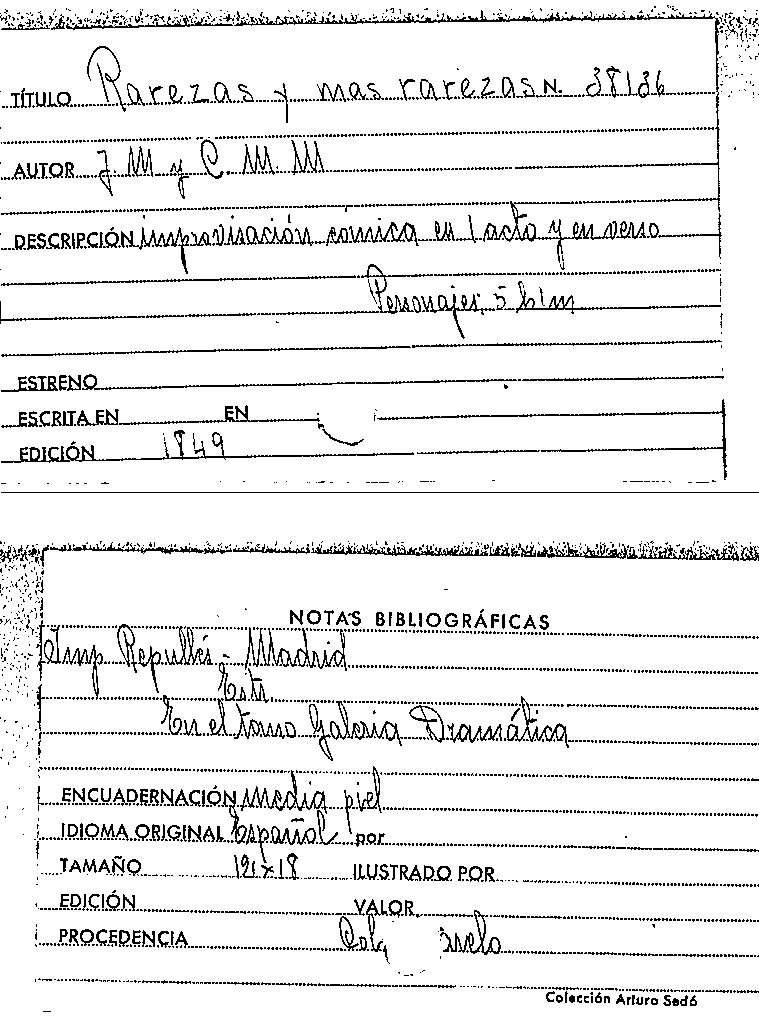 TÍTULO Rarezas y mas rarezas N. 38136
AUTOR J. M y C. M. M
DESCRIPCIÓN improvisación cómica en 1 acto y en verso
Personajes, 5 h 1 m
ESTRENO
ESCRITA EN EN
EDICIÓN 1849
NOTAS BIBLIOGRÁFICAS
Imp Repullés - Madrid
Estr.
En el tomo Galeria Dramática
ENCUADERNACIÓN media piel
IDIOMA ORIGINAL Español por
TAMAÑO 12x18 ILUSTRADO POR
EDICIÓN VALOR
PROCEDENCIA
Colección Arturo Sedó